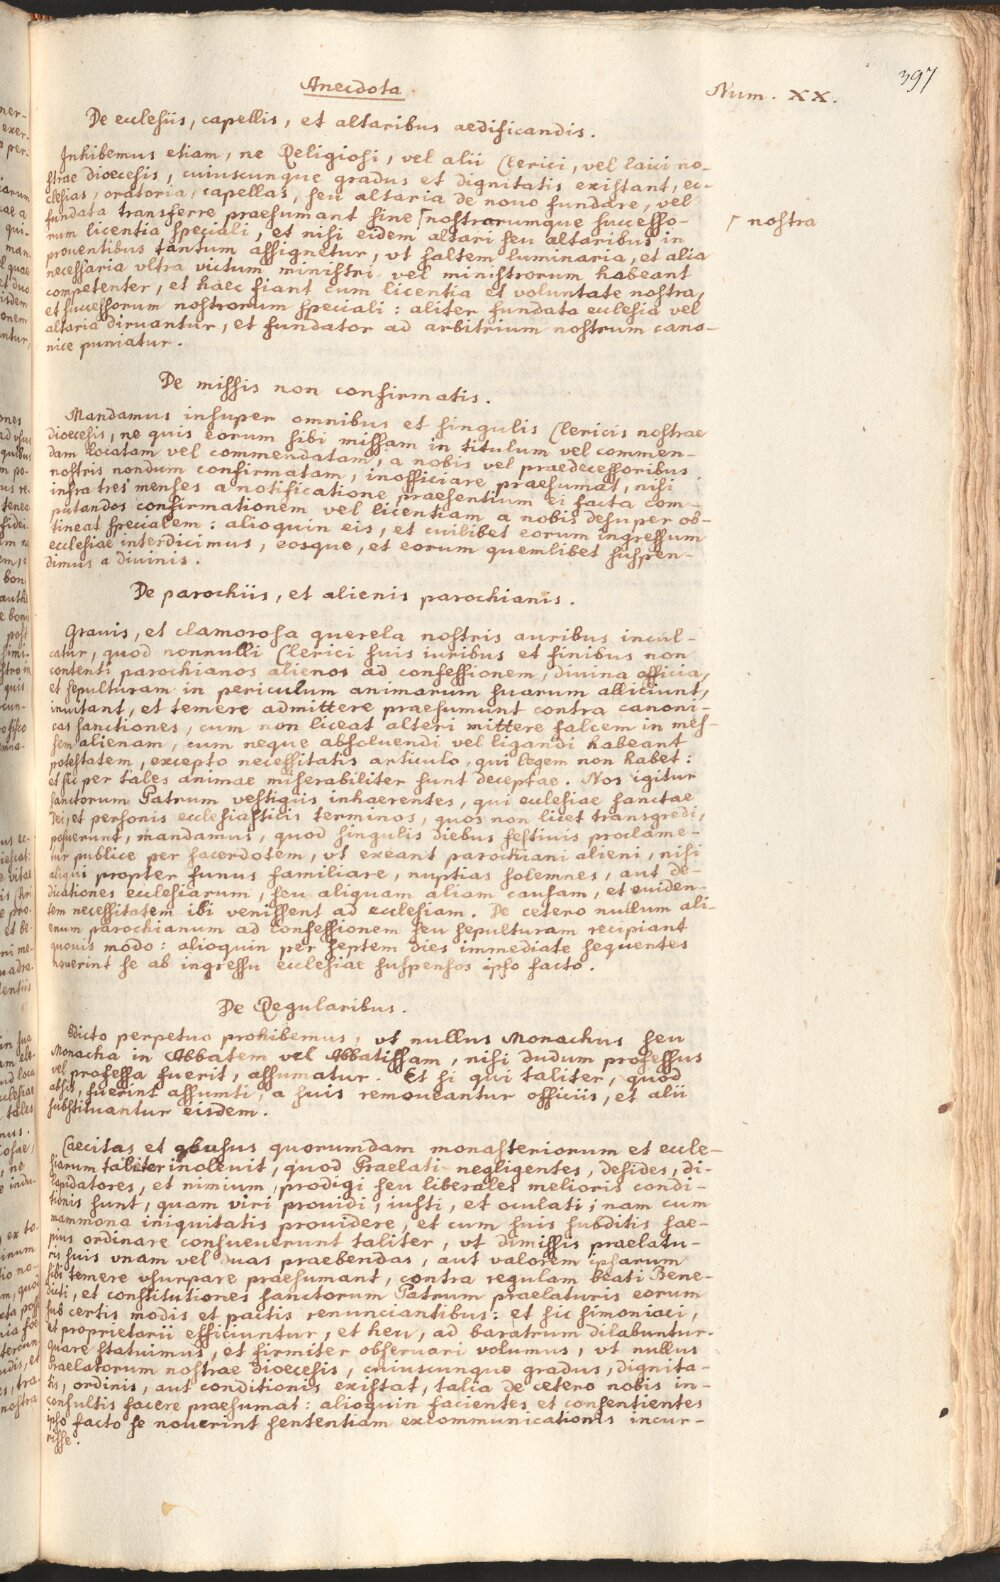 397
Anecdota. Num. XX.
De ecclesiis, capellis, et altaribus aedificandis.
Inhibemus etiam, ne Religiosi, vel alii Clerici, vel laici no-
strae dioecesis, cuiuscunque gradus et dignitatis existant, ec-
clesias, oratoria, capellas, seu altaria de nouo fundare, vel
fundata transferre praesumant sine ⌈nostrarumque successo-
⌈ nostra
rum licentia speciali, et nisi eidem altari seu altaribus in
prouentibus tantum assignetur, vt saltem luminaria, et alia
necessaria vltra victum ministri vel ministrorum habeant
competenter, et haec fiant cum licentia et voluntate nostra,
et successorum nostrorum speciali: aliter fundata ecclesia vel
altaria diruantur, et fundator ad arbitrium nostrum cano-
nice puniatur.
De missis non confirmatis.
Mandamus insuper omnibus et singulis Clericis nostrae
dioecesis, ne quis eorum sibi missam in titulum vel commen-
dam locatam vel commendatam, a nobis vel praedecessoribus
nostris nondum confirmatam, inofficiare praesumat, nisi
infra tres menses a notificatione praesentium ei facta com-
putandos confirmationem vel licentiam a nobis desuper ob-
tineat specialem: alioquin eis, et cuilibet eorum ingressum
ecclesiae interdicimus, eosque, et eorum quemlibet suspen-
dimus a diuinis.
De parochiis, et alienis parochianis.
Grauis, et clamorosa querela nostris auribus incul-
catur, quod nonnulli Clerici suis iuribus et finibus non
contenti parochianos alienos ad confessionem, diuina officia,
et sepulturam in periculum animarum suarum alliciunt,
inuitant, et temere admittere praesumunt contra canoni-
cas sanctiones, cum non liceat alteri mittere falcem in mes-
sem alienam, cum neque absoluendi vel ligandi habeant
potestatem, excepto necessitatis articulo, qui legem non habet:
et sic per tales animae miserabiliter sunt deceptae. Nos igitur
sanctorum Patrum vestigiis inhaerentes, qui ecclesiae sanctae
Dei, et personis ecclesiasticis terminos, quos non licet transgredi,
posuerunt, mandamus, quod singulis diebus festiuis proclame-
tur publice per sacerdotem, vt exeant parochiani alieni, nisi
aliqui propter funus familiare, nuptias solemnes, aut de-
dicationes ecclesiarum, seu aliquam aliam causam, et euiden-
tem necessitatem ibi venissent ad ecclesiam. De cetero nullum ali-
enum parochianum ad confessionem seu sepulturam recipiant
quouis modo: alioquin per septem dies immediate sequentes
nouerint se ab ingressu ecclesiae suspensos ipso facto.
De Regularibus.
Edicto perpetuo prohibemus, vt nullus Monachus seu
Monacha in Abbatem vel Abbatissam, nisi dudum professus
vel professa fuerit, assumatur. Et si qui taliter, quod
absit, fuerint assumti, a suis remoueantur officiis, et alii
substituantur eisdem.
Caecitas et abusus quorumdam monasteriorum et eccle-
siarum taliter inoleuit, quod Praelati negligentes, desides, di-
lapidatores, et nimium prodigi seu liberales melioris condi-
tionis sunt, quam viri prouidi, iusti, et oculati; nam cum
mammona iniquitatis prouidere, et cum suis subditis sae-
pius ordinare consueuerunt taliter, vt dimissis praelatu-
ris suis vnam vel duas praebendas, aut valorem ipsarum
sibi temere vsurpare praesumant, contra regulam beati Bene-
dicti, et constitutiones sanctorum Patrum praelaturis eorum
sub certis modis et pactis renunciantibus: et sic simoniaci,
et proprietarii efficiuntur, et heu, ad baratrum dilabuntur.
Quare statuimus, et firmiter obseruari volumus, vt nullus
Praelatorum nostrae dioecesis, cuiuscunque gradus, dignita-
tis, ordinis, aut conditionis existat, talia de cetero nobis in-
consultis facere praesumat: alioquin facientes et consentientes
ipso facto se nouerint sententiam excommunicationis incur-
risse.